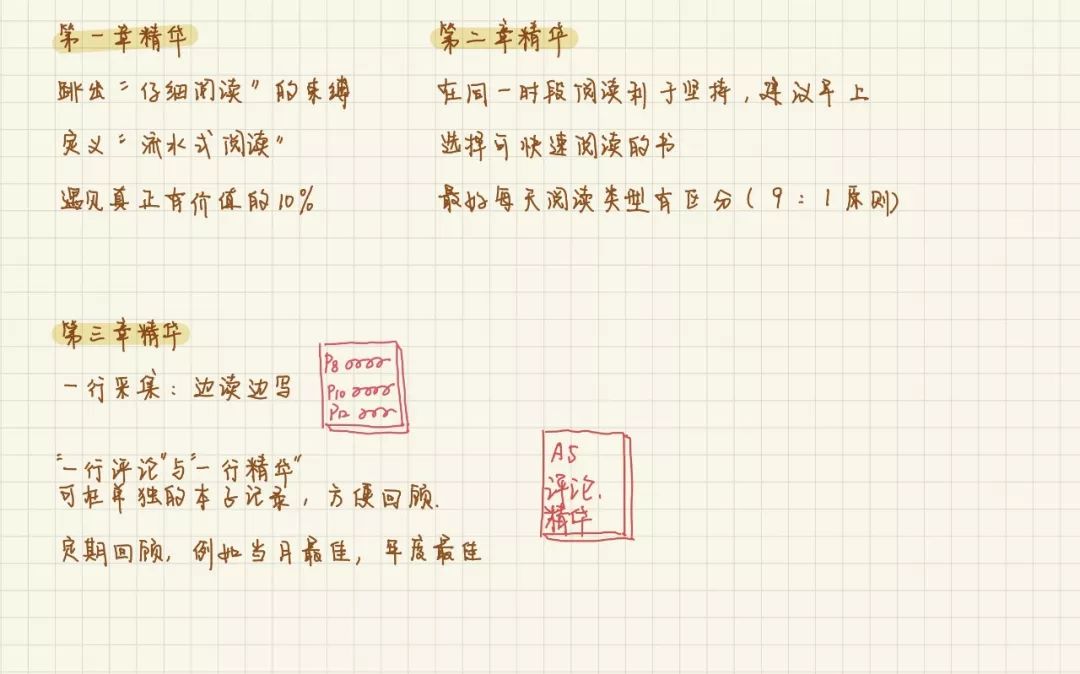 第一章精华
跳出“仔细阅读”的束缚
定义“流水式阅读”
遇见真正有价值的10%
第二章精华
在同一时段阅读利于坚持，建议早上
选择可快速阅读的书
最好每天阅读类型有区分(9:1原则)
第三章精华
一行采集：边读边写
P8
P10
P12
“一行评论”与“一行精华”
可在单独的本子记录，方便回顾.
定期回顾，例如当月最佳，年度最佳
A5
评论.
精华